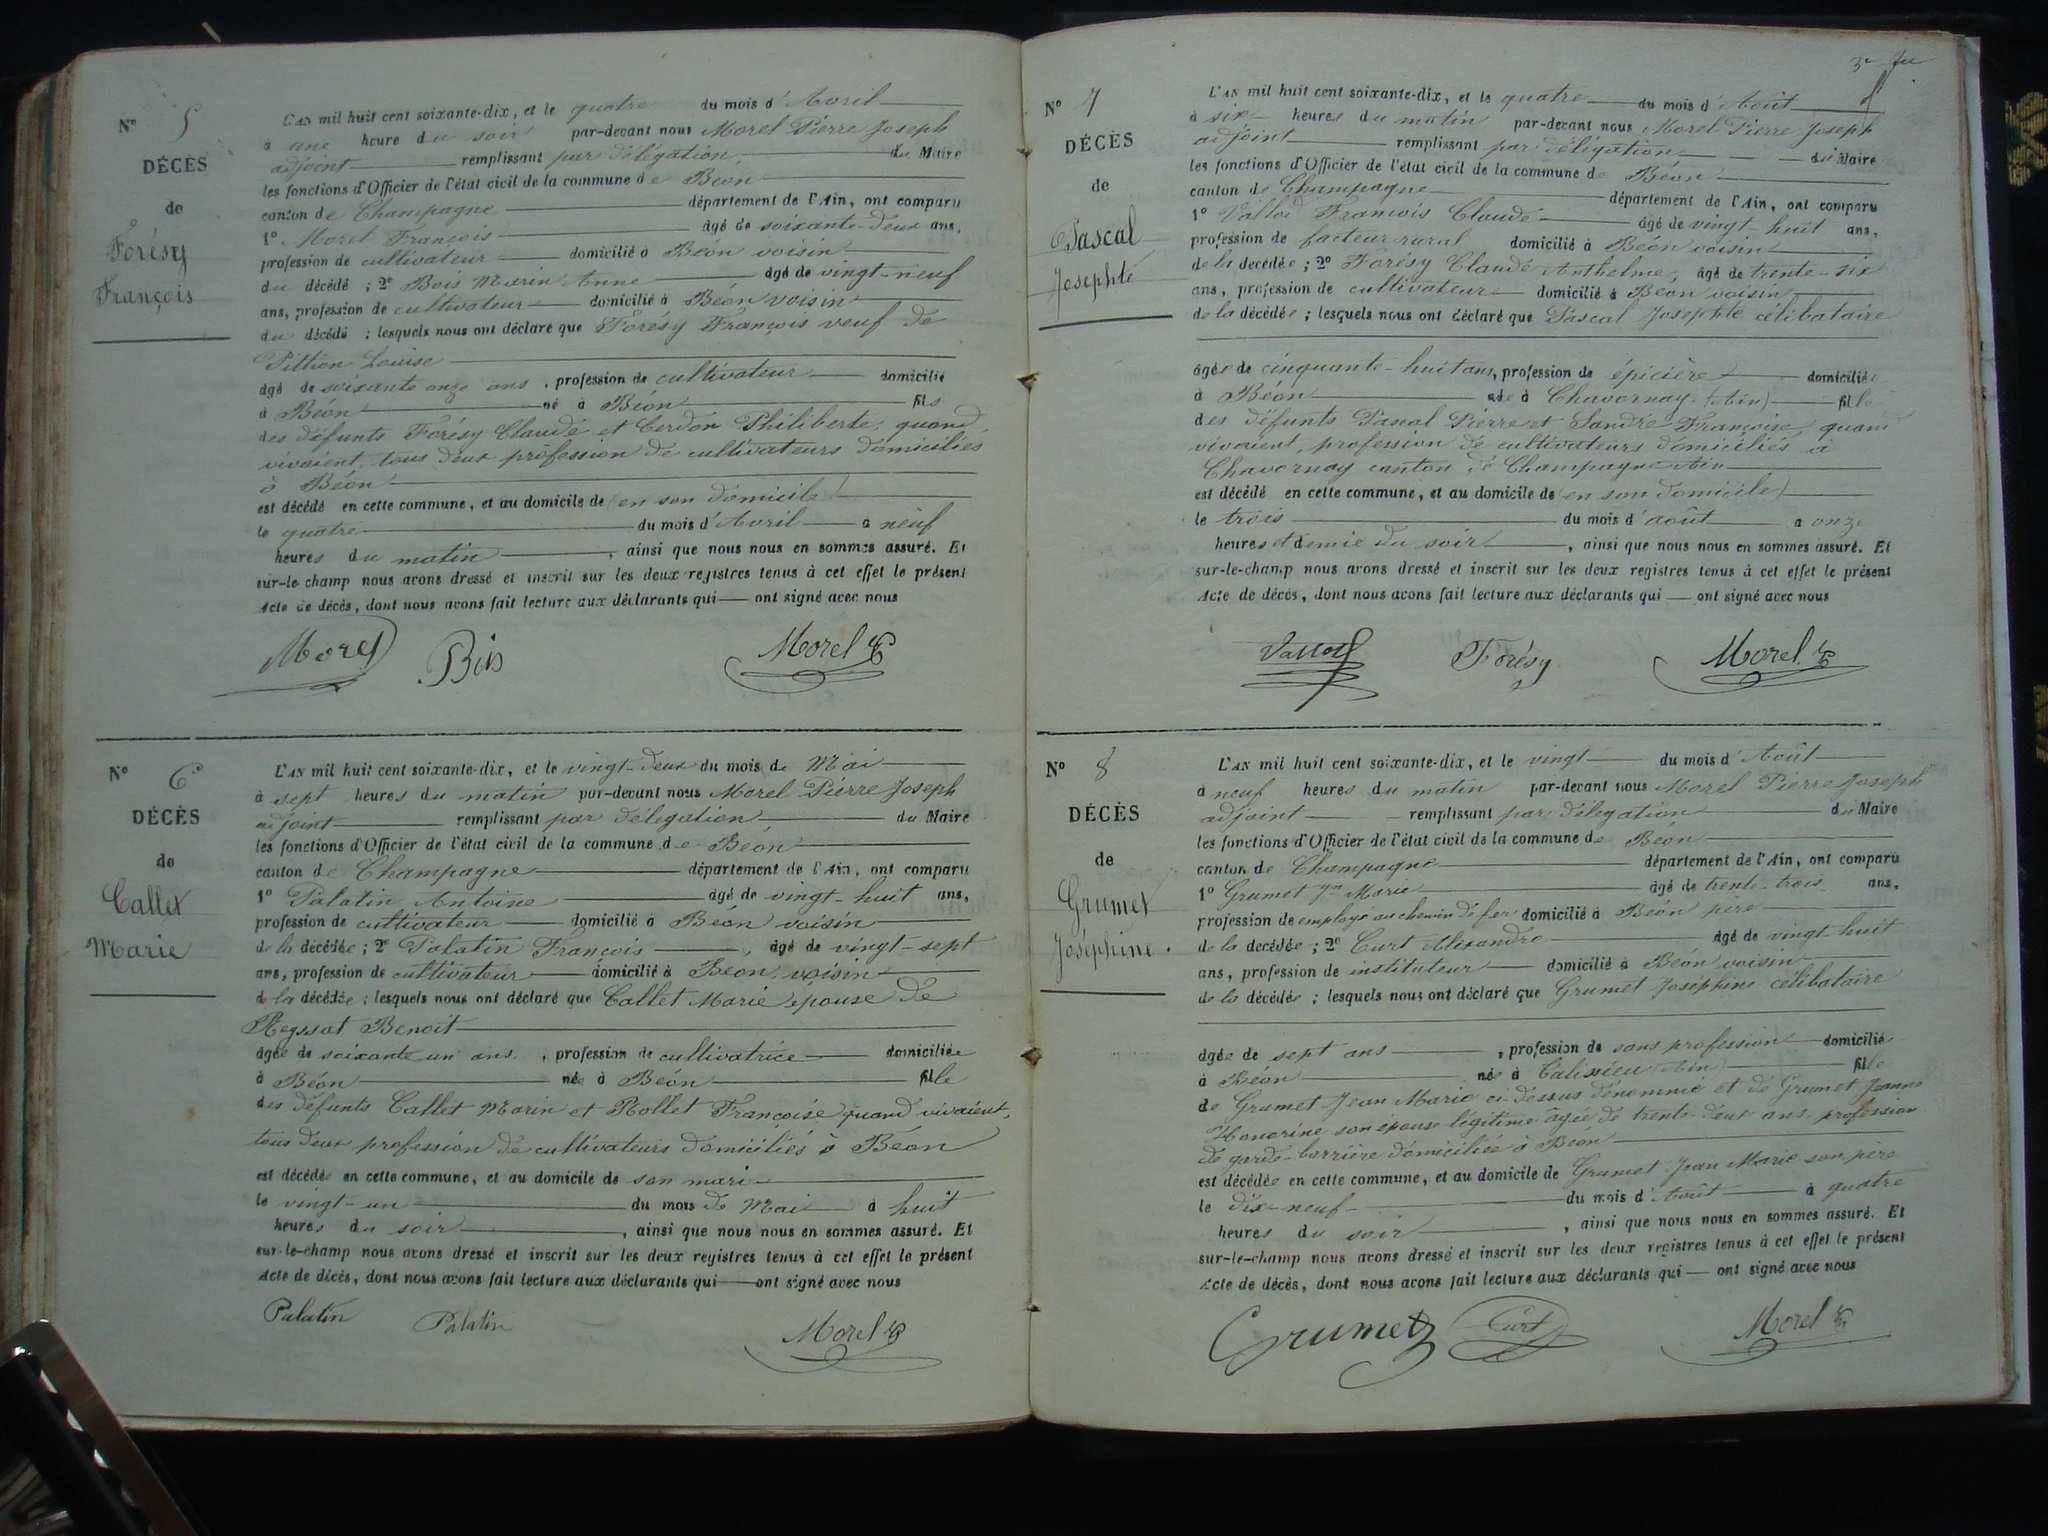 Nº 5
DÉCÈS
de
Forésy
François
L'AN mil huit cent soixante-dix, et le quatre du mois d'Avril
à une heure du soir par-devant nous Morel Pierre Joseph
adjoint remplissant par délégation du Maire
les fonctions d'Officier de l'état civil de la commune de Béon
canton de Champagne département de l'Ain, ont comparu
1º Morel François âgé de soixante-deux ans,
profession de cultivateur domicilié à Béon voisin
du décédé ; 2º Bois Marin Anne âgé de vingt-neuf
ans, profession de cultivateur domicilié à Béon voisin
du décédé ; lesquels nous ont déclaré que Forésy François veuf de
Pittion Louise
âgé de soixante onze ans, profession de cultivateur domicilié
à Béon né à Béon fils
des défunts Forésy Claude et Cerdon Philiberte, quand
vivaient, tous deux profession de cultivateurs domiciliés
à Béon
est décédé en cette commune, et au domicile de (en son domicile)
le quatre du mois d'Avril à neuf
heures du matin, ainsi que nous nous en sommes assuré. Et
sur-le-champ nous avons dressé et inscrit sur les deux registres tenus à cet effet le présent
Acte de décès, dont nous avons fait lecture aux déclarants qui — ont signé avec nous
Morel Bois Morel
Nº 6
DÉCÈS
de
Callet
Marie
L'AN mil huit cent soixante-dix, et le vingt-deux du mois de Mai
à sept heures du matin par-devant nous Morel Pierre Joseph
adjoint remplissant par délégation du Maire
les fonctions d'Officier de l'état civil de la commune de Béon
canton de Champagne département de l'Ain, ont comparu
1º Palatin Antoine âgé de vingt-huit ans,
profession de cultivateur domicilié à Béon voisin
de la décédée ; 2º Palatin François, âgé de vingt-sept
ans, profession de cultivateur domicilié à Béon, voisin
de la décédée ; lesquels nous ont déclaré que Callet Marie épouse de
Reyssat Benoit
âgée de soixante un ans, profession de cultivatrice domiciliée
à Béon née à Béon fille
des défunts Callet Marin et Rollet Françoise quand vivaient,
tous deux profession de cultivateurs domiciliés à Béon
est décédée en cette commune, et au domicile de son mari
le vingt-un du mois de Mai à huit
heures du soir, ainsi que nous nous en sommes assuré. Et
sur-le-champ nous avons dressé et inscrit sur les deux registres tenus à cet effet le présent
Acte de décès, dont nous avons fait lecture aux déclarants qui — ont signé avec nous
Palatin Palatin Morel
Nº 7
DÉCÈS
de
Pascal
Josephte
L'AN mil huit cent soixante-dix, et le quatre du mois d'Août
à six heures du matin par-devant nous Morel Pierre Joseph
adjoint remplissant par délégation du Maire
les fonctions d'Officier de l'état civil de la commune de Béon
canton de Champagne département de l'Ain, ont comparu
1º Vallod François Claude âgé de vingt-huit ans,
profession de facteur rural domicilié à Béon voisin
de la décédée ; 2º Forésy Claude Anthelme, âgé de trente-six
ans, profession de cultivateur domicilié à Béon voisin
de la décédée ; lesquels nous ont déclaré que Pascal Josephte célibataire
âgée de cinquante-huit ans, profession de épicière domiciliée
à Béon née à Chavornay (Ain) fille
des défunts Pascal Pierre et Sandre Françoise, quand
vivaient, profession de cultivateurs domiciliés à
Chavornay canton de Champagne Ain
est décédé en cette commune, et au domicile de (en son domicile)
le trois du mois d'août à onze
heures et demie du soir, ainsi que nous nous en sommes assuré. Et
sur-le-champ nous avons dressé et inscrit sur les deux registres tenus à cet effet le présent
Acte de décès, dont nous avons fait lecture aux déclarants qui — ont signé avec nous
Vallod Forésy Morel
Nº 8
DÉCÈS
de
Grumet
Joséphine.
L'AN mil huit cent soixante-dix, et le vingt du mois d'Août
à neuf heures du matin par-devant nous Morel Pierre Joseph
adjoint remplissant par délégation du Maire
les fonctions d'Officier de l'état civil de la commune de Béon
canton de Champagne département de l'Ain, ont comparu
1º Grumet Jn Marie âgé de trente-trois ans,
profession de employé au chemin de fer domicilié à Béon père
de la décédée ; 2º Curt Alexandre âgé de vingt-huit
ans, profession de instituteur domicilié à Béon voisin
de la décédée ; lesquels nous ont déclaré que Grumet Joséphine célibataire
âgée de sept ans, profession de sans profession domiciliée
à Béon née à Talissieu (Ain) fille
de Grumet Jean Marie ci-dessus dénommé et de Grumet Jeanne
Honorine son épouse légitime âgée de trente-deux ans profession
de garde-barrière domiciliée à Béon
est décédée en cette commune, et au domicile de Grumet Jean Marie son père
le dix-neuf du mois d'Août à quatre
heures du soir, ainsi que nous nous en sommes assuré. Et
sur-le-champ nous avons dressé et inscrit sur les deux registres tenus à cet effet le présent
Acte de décès, dont nous avons fait lecture aux déclarants qui — ont signé avec nous
Grumet Curt Morel